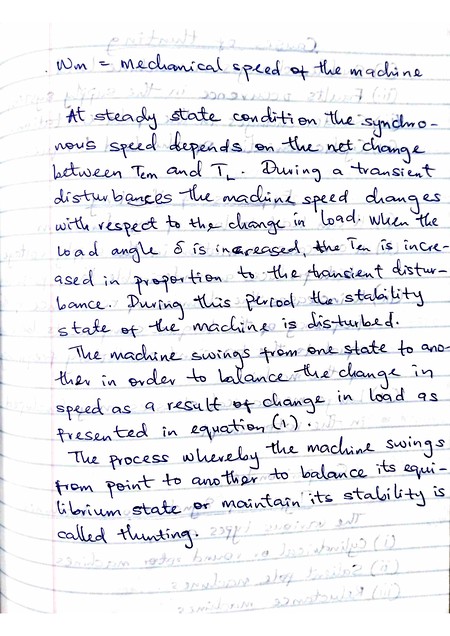 . Wm = mechanical speed of the machine
At steady state condition the synchro-
nous speed depends on the net change
between Tem and TL. During a transient
disturbances the machine speed changes
with respect to the change in load. When the
load angle δ is increased, the Tem is incre-
ased in proportion to the transient distur-
bance. During this period the stability
state of the machine is disturbed.
The machine swings from one state to ano-
ther in order to balance the change in
speed as a result of change in load as
presented in equation (1).
The process whereby the machine swings
from point to another to balance its equi-
librium state or maintain its stability is
called thunting.